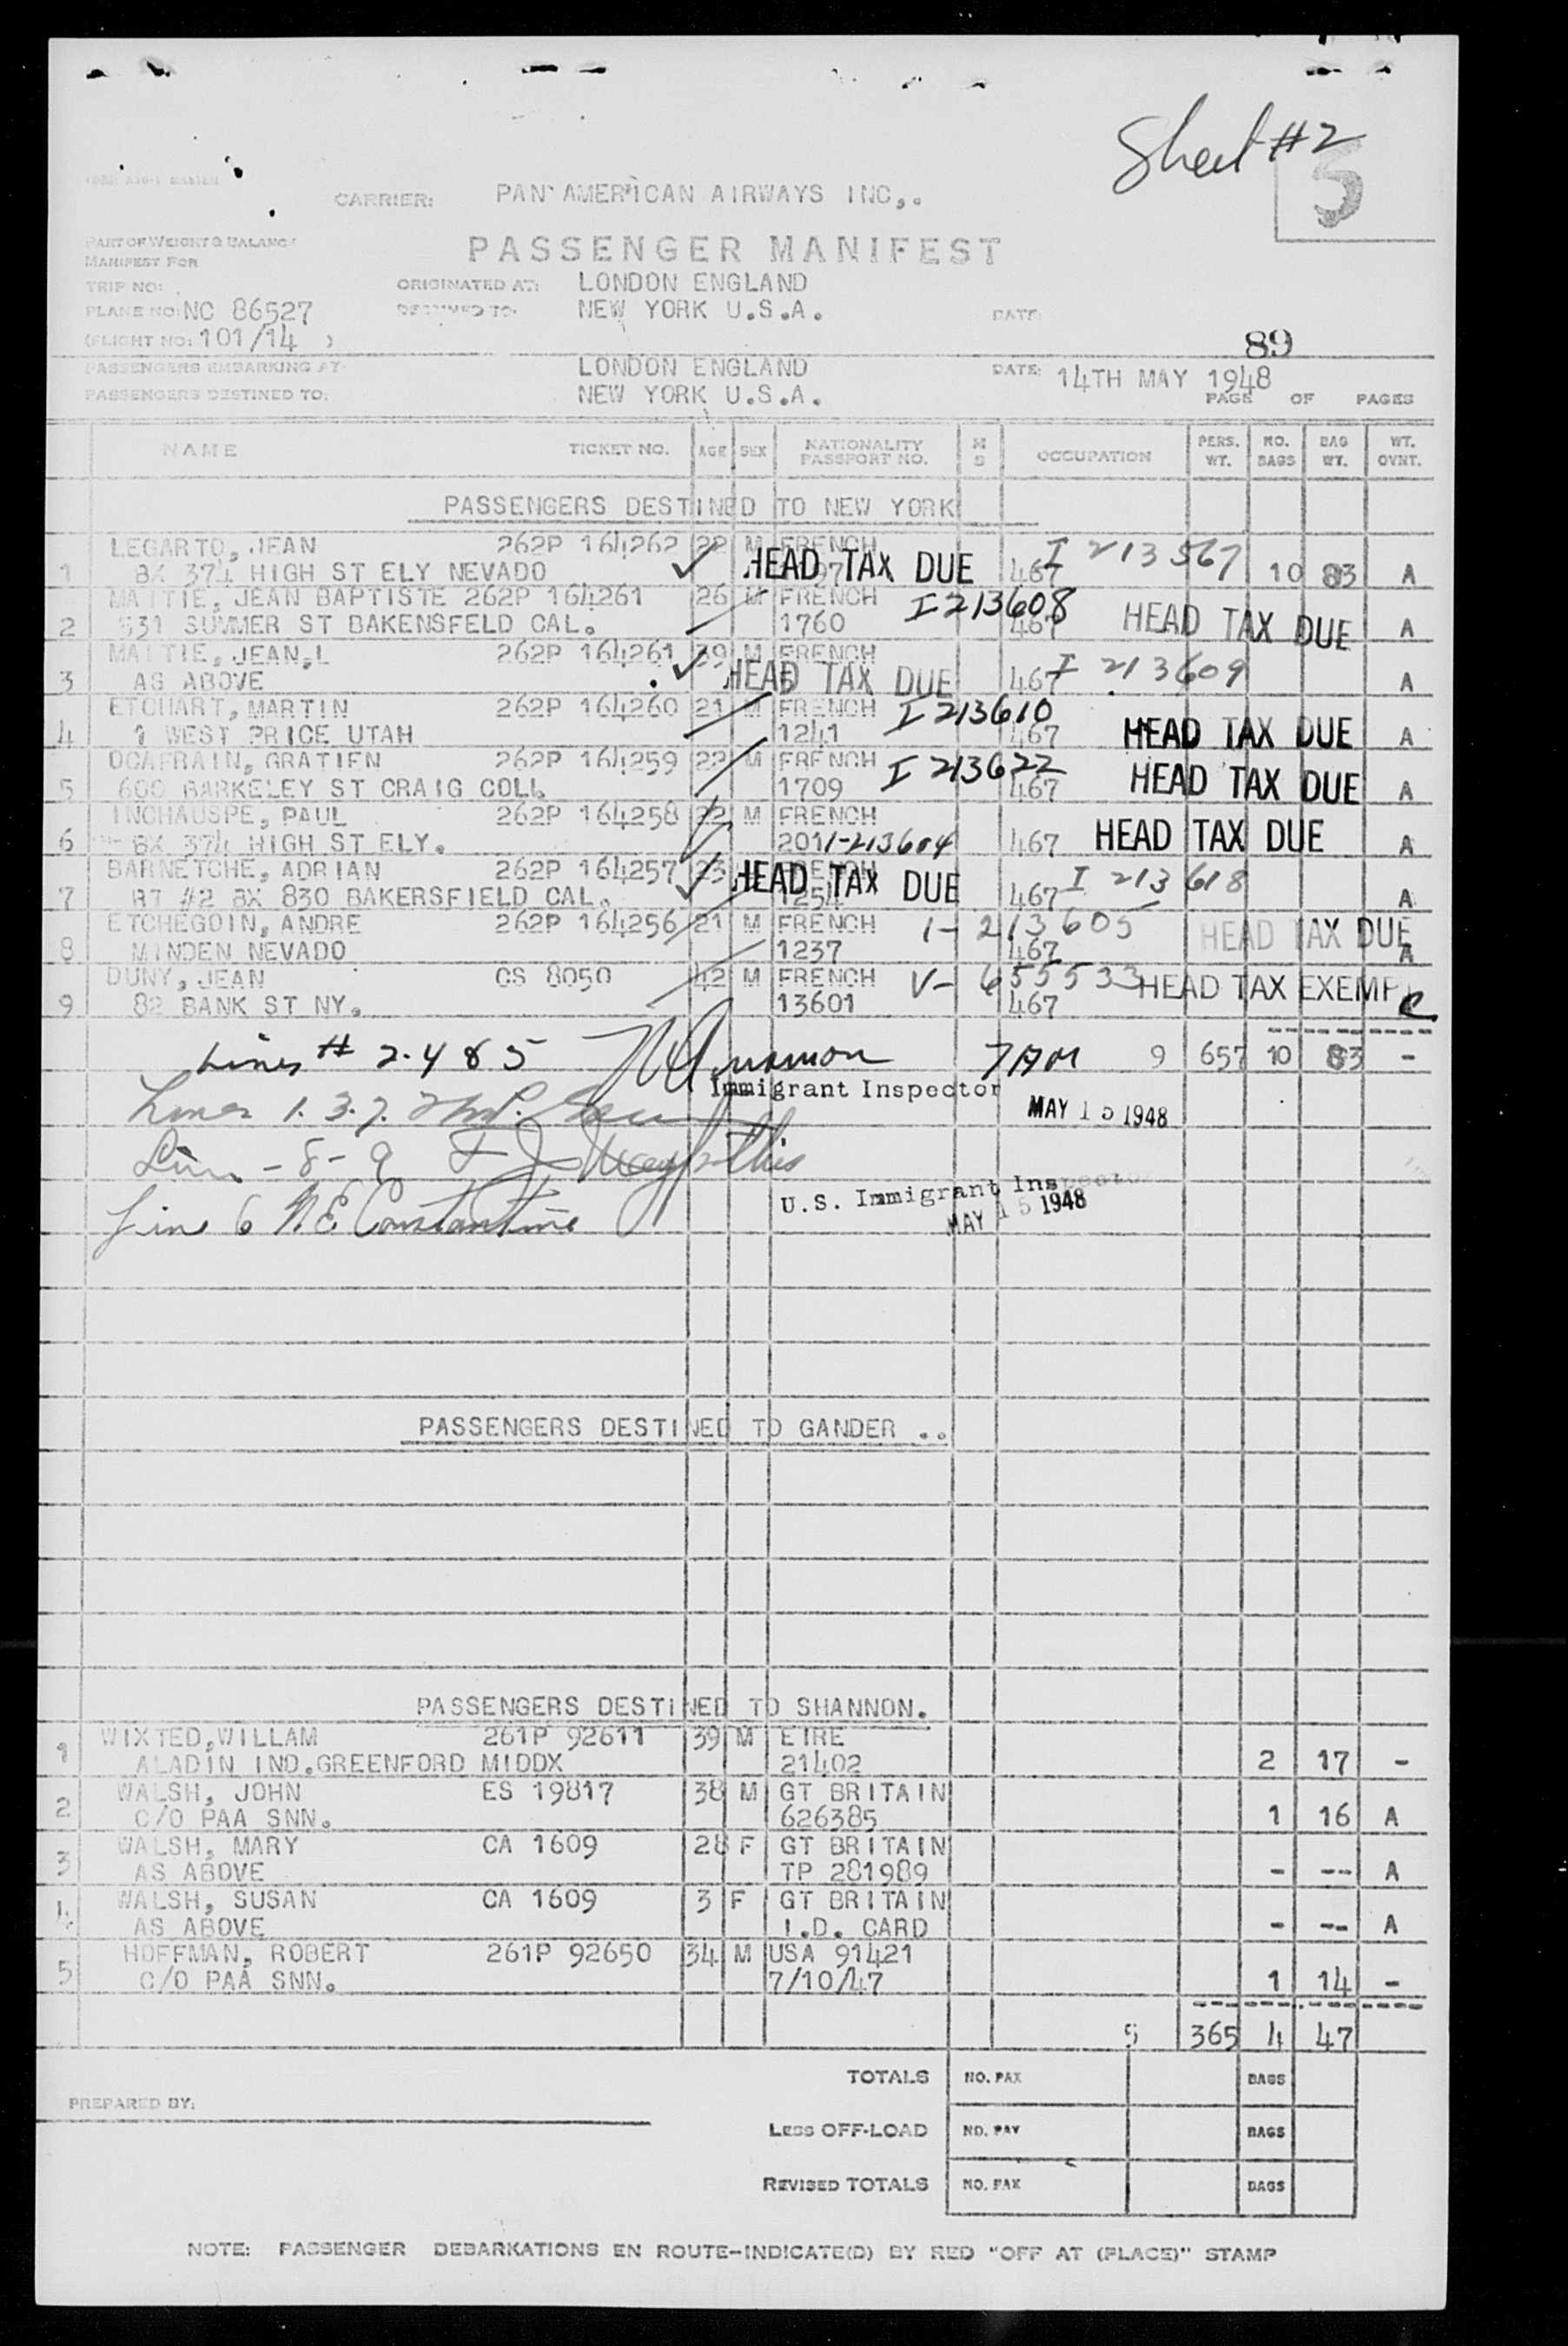 Sheet #2
5
CARRIER: PAN AMERICAN AIRWAYS INC,.
PART OF WEIGHT & BALANCE
MANIFEST FOR
PASSENGER MANIFEST
TRIP NO: ORIGINATED AT: LONDON ENGLAND
PLANE NO: NC 86527 DESTINED TO: NEW YORK U.S.A. DATE:
(FLIGHT NO: 101/14 )
89
PASSENGERS EMBARKING AT: LONDON ENGLAND DATE: 14TH MAY 1948
PASSENGERS DESTINED TO: NEW YORK U.S.A. PAGE OF PAGES
NAME TICKET NO. AGE SEX NATIONALITY PASSPORT NO. M S OCCUPATION PERS. WT. NO. BAGS BAG WT. WT. OVNT.
PASSENGERS DESTINED TO NEW YORK
LEGARTO, JEAN 262P 164262 22 M FRENCH I 213567
1 BX 374 HIGH ST ELY NEVADO HEAD TAX DUE 467 10 83 A
MAITIE, JEAN BAPTISTE 262P 164261 26 M FRENCH I 213608
2 531 SUMMER ST BAKENSFELD CAL. 1760 467 HEAD TAX DUE A
MAITIE, JEAN,L 262P 164261 39 M FRENCH I 213609
3 AS ABOVE HEAD TAX DUE 467 A
ETCHART, MARTIN 262P 164260 21 M FRENCH I 213610
4 1 WEST PRICE UTAH 1241 467 HEAD TAX DUE A
OCAFRAIN, GRATIEN 262P 164259 22 M FRENCH I 213622
5 600 BARKELEY ST CRAIG COLL 1709 467 HEAD TAX DUE A
INCHAUSPE, PAUL 262P 164258 22 M FRENCH
6 BX 374 HIGH ST ELY. 201 1-213604 467 HEAD TAX DUE A
BARNETCHE, ADRIAN 262P 164257 23 HEAD TAX DUE I 213618
7 RT #2 BX 830 BAKERSFIELD CAL. 1254 467 A
ETCHEGOIN, ANDRE 262P 164256 21 M FRENCH 1-213605 HEAD TAX DUE
8 MINDEN NEVADO 1237 467 A
DUNY, JEAN CS 8050 42 M FRENCH V-655533 HEAD TAX EXEMPT
9 82 BANK ST NY. 13601 467 C
Lines # 2-4 & 5 7AM 9 657 10 83 -
Immigrant Inspector
Lines 1.3.7. MAY 15 1948
Line - 8 - 9
U.S. Immigrant Inspector
Line 6 N.E. Constantine MAY 15 1948
PASSENGERS DESTINED TO GANDER ..
PASSENGERS DESTINED TO SHANNON.
WIXTED,WILLAM 261P 92611 39 M EIRE
1 ALADIN IND.GREENFORD MIDDX 21402 2 17 -
WALSH, JOHN ES 19817 38 M GT BRITAIN
2 C/O PAA SNN. 626385 1 16 A
WALSH, MARY CA 1609 28 F GT BRITAIN
3 AS ABOVE TP 281989 - -- A
WALSH, SUSAN CA 1609 3 F GT BRITAIN
4 AS ABOVE I.D. CARD - -- A
HOFFMAN, ROBERT 261P 92650 34 M USA 91421
5 C/O PAA SNN. 7/10/47 1 14 -
5 365 4 47
TOTALS NO. PAX BAGS
PREPARED BY:
LESS OFF-LOAD NO. PAX BAGS
REVISED TOTALS NO. PAX BAGS
NOTE: PASSENGER DEBARKATIONS EN ROUTE-INDICATE(D) BY RED "OFF AT (PLACE)" STAMP